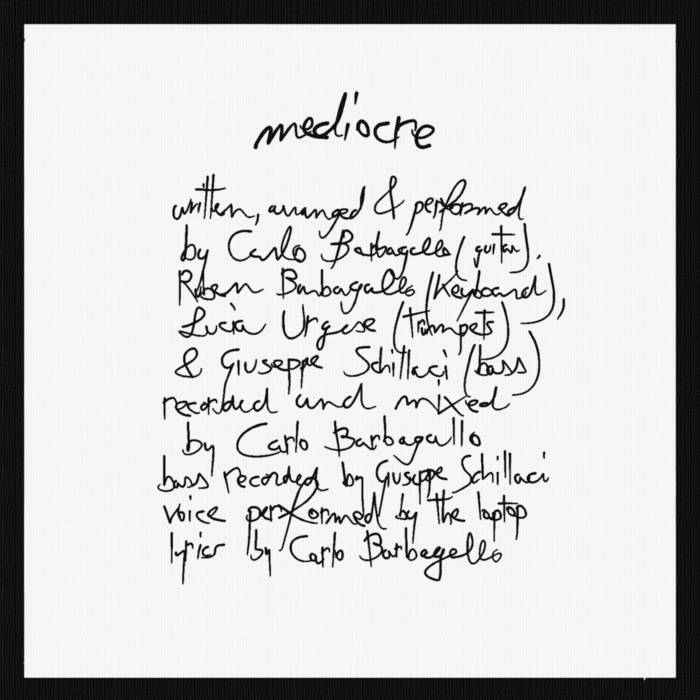 mediocre
written, arranged & performed
by Carlo Barbagallo (guitar),
Ruben Barbagallo (Keyboard),
Lucia Urgese (trumpets)
& Giuseppe Schillaci (bass)
recorded and mixed
by Carlo Barbagallo
bass recorded by Giuseppe Schillaci
voice performed by the laptop
lyrics by Carlo Barbagallo